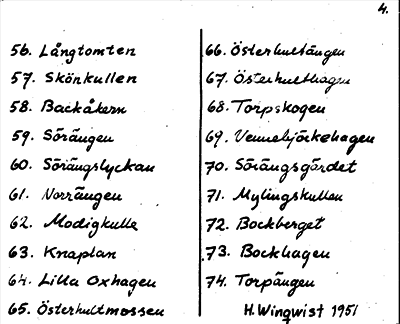 4.
56. Långtomten
57. Skönkullen
58. Backåkern
59. Sörängen
60. Sörängslyckan
61. Norrängen
62. Modigkulle
63. Knaplan
64. Lilla Oxhagen
65. Österhultmossen
66. Österhultängen
67. Österhulthagen
68. Torpskogen
69. Vennebjörkehagen
70. Sörängsgärdet
71. Mylingskullen
72. Bockberget
73. Bockhagen
74. Torpängen
H. Wingwist 1951